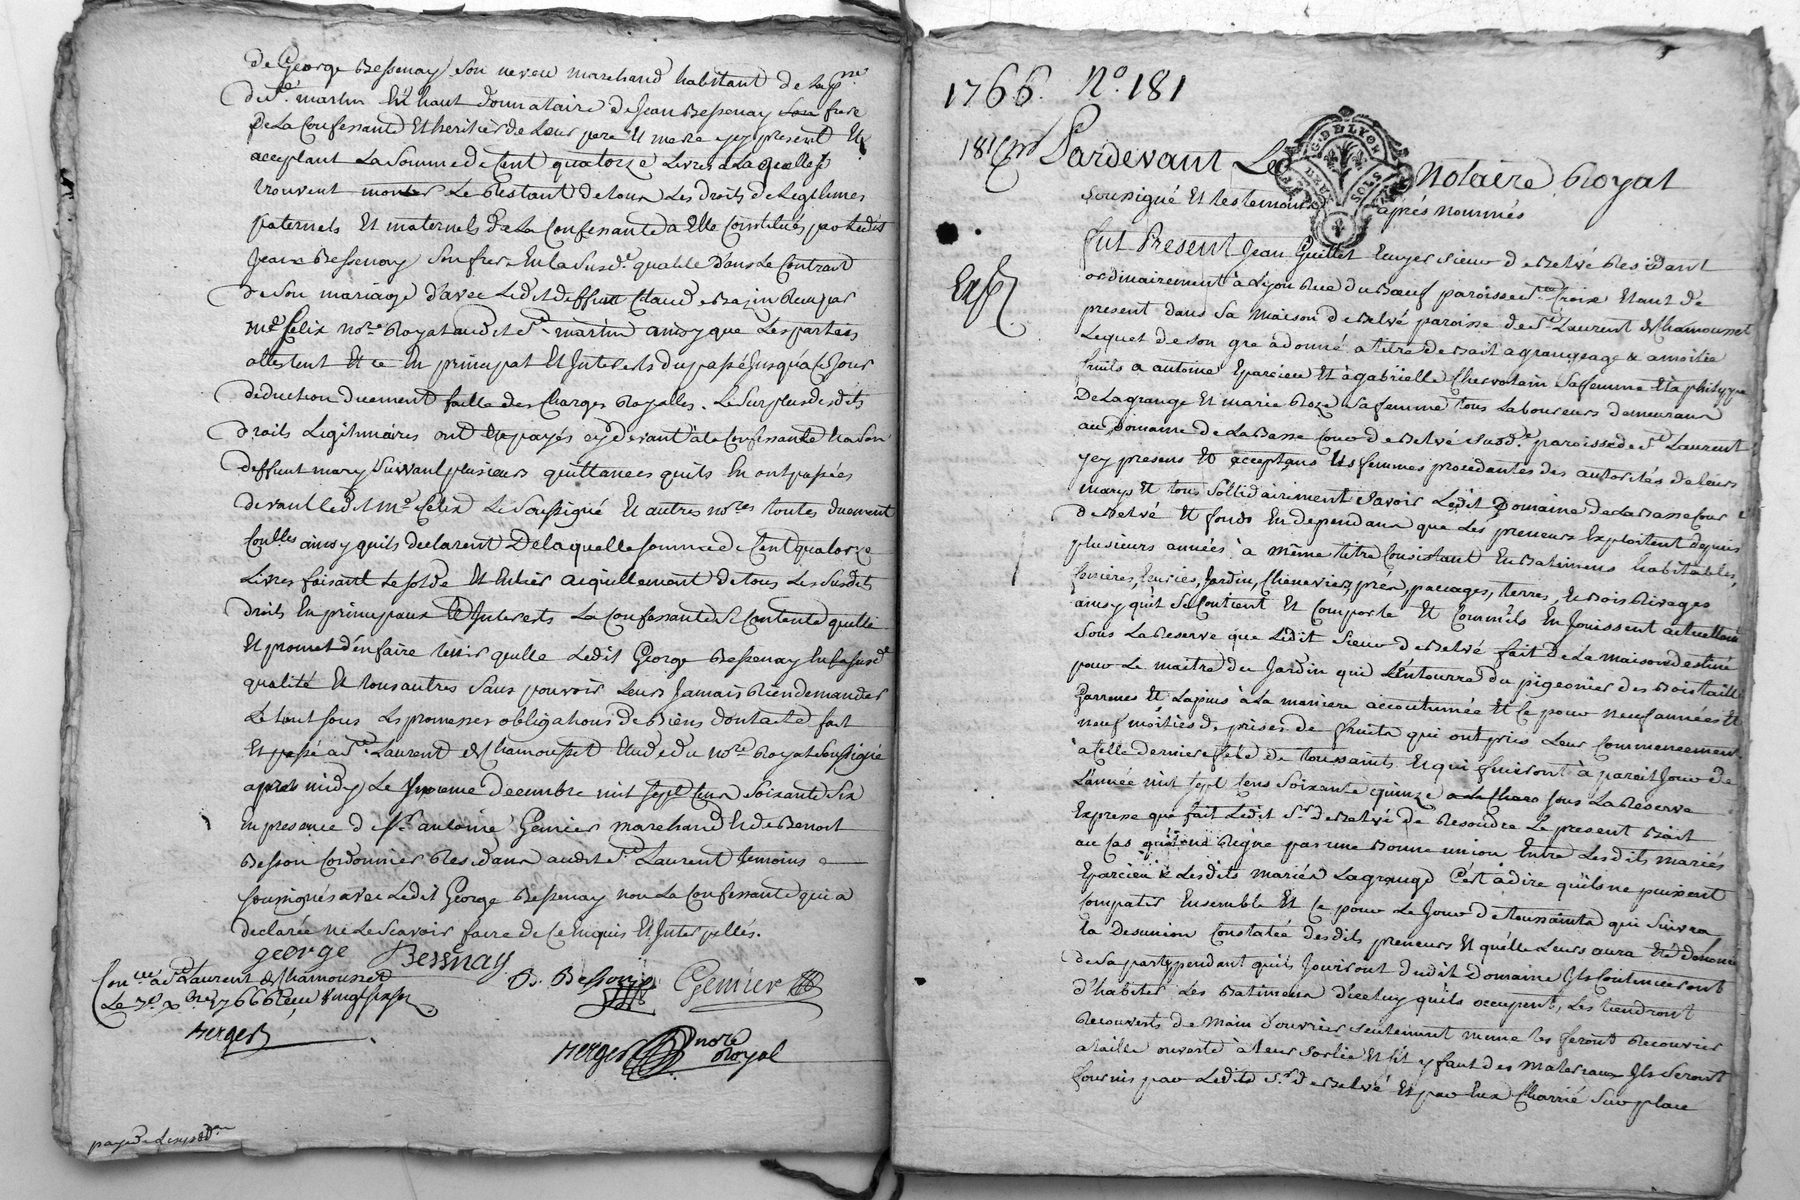 de George Bessenay son neveu marchand habitant de la pnre
de St. martin En haut donnataire de Jean Bessenay son frere
De La Confessante Et heritier de Leur pere Et mere icy present Et
acceptant La Somme de Cent quatorze Livres a Laquelle
trouvent monter Le Restant de tous Les droits de Legitimes
paternels Et maternels de La Confessante a Elle Constitués par Ledit
Jean Bessenay Son frere En la Susd. qualité dans Le Contrat
de Son mariage d'avec Ledit deffunt Claude Bazin Reçu par
Me Celix nore Royal audit St. martin ainsy que Les parties
attestent Et ce En principal Et Interets du passé Jusqu'à ce Jour
déduction duement faitte des Charges Royalles. Le Surplus desdits
droits Legitimaires ont Eté payés cy devant à la Confessante Et a Son
deffunt mary Suivant plusieurs quittances quils En ont passées
devant Ledit Me Celix Le Soussigné Et autres nores toutes duement
Conllées ainsy quils declarent De laquelle somme de Cent quatorze
Livres faisant Le solde Et Entier aquittement de tous Les Susdits
droits En principaux Et Interets La Confessante Se Contente quitte
Et promet d'en faire tenir quitte Ledit George Bessenay En La Susd.
qualité Et tous autres Sans pouvoir Leurs Jamais Rien demander
Le tout Sous Les promesses obligations de Biens dont acte fait
Et passé a St. Laurent de Chamousset Etude du nore Royal Soussigné
aprés midy Le decembre mil Sept Cens Soixante Six
En presence d Sr. antoine Genier marchand Et de Benoit
Besson Cordonnier Residans audit St. Laurent temoins
soussignés avec Ledit George Bessenay non La Confessante qui a
declarée ne Le Scavoir faire de Ce Enquis Et Interpellés.
george Bessnay
B. Besson Genier
Con.lle a St Laurent de Chamousset
Le 1766 Reçu
Berger
Berger nore Royal
1766. No. 181
181 Pardevant Le Notaire Royal
Soussigné Et les temoins aprés nommés
Fut Present Jean Guillet Ecuyer Sieur de Belvé Residant
ordinairement à Lyon Rue du Bœuf paroisse Ste Croix Etant de
present dans Sa Maison de Belvé paroisse de St. Laurent de Chamousset
Lequel de son gré à donné a titre de Bail a grangeage & a moitié
fruits a antoine Eparcieu Et à gabrielle Chervolain Sa femme Et a philippe
De Lagrange Et marie Roze Sa femme tous Laboureurs demeurans
au Domaine de La Basse Cour de Belvé Susd. paroisse de St. Laurent
icy presens Et acceptans Les femmes procedantes des autorités de leurs
marys Et tous Sollidairement Scavoir Ledit Domaine de La Basse Cour
de Belvé Et fonds En dependans que Les preneurs Exploitent depuis
plusieurs années à même titre Consistant En Batimens habitables,
feinières, Ecuries, Jardin, Cheneviers, prés, paccages, terres, Et Bois Rivages
ainsy qu'il se Contient Et Comporte Et Comm'ils En Jouissent actuellemt
Sous La Reserve que Ledit Sieur de Belvé fait de La maison destiné
pour Le maitre du Jardin qui L'entourre du pigeonier des Bois taillis
Garennes Et Lapins à La maniere accoutumée Et Ce pour neuf années Et
neuf moitiés de prises de fruits qui ont pris Leur Commencement
à telle derniere fete de toussaints Et qui finiront à pareil Jour de
L'année mil Sept Cens Soixante quinze Sous La Reserve
Expresse que fait Ledit Sr. de Belvé de Resoudre Le present Bail
au Cas qu'il ne Règne pas une Bonne union Entre Lesdits mariés
Eparcieu & Lesdits mariés Lagrange C'est à dire qu'ils ne puissent
Compatir Ensemble Et Ce pour Le Jour de toussaints qui Suivra
La Desunion Constatée desdits preneurs Et qu'elle Leurs aura Eté denoncée
de Sa part, pendant quils Jouiront dudit domaine Ils Contenteront
d'habiter Les Batimens d'icelui qu'ils occupent, Les tiendront
Recouverts de main d'ouvrier Seulement même les feront Recouvrir
a taille ouverte à leur Sortie Et s'il y faut des Materiaux Ils Seront
fournis par Ledit Sr. de Belvé Et par Eux Charrié Sur place